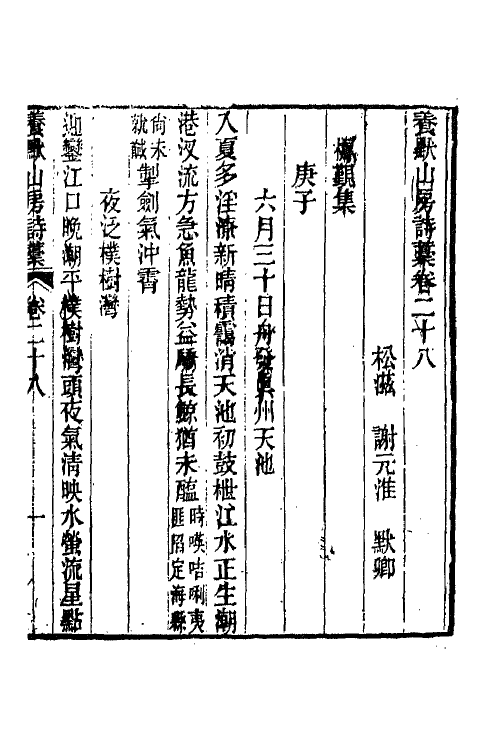 養默山房詩藁卷二十八
松滋 謝元淮 默卿
觀集
庚子
六月三十日舟發真州天池
入夏多淫潦新晴積靄消天池初鼓枻江水正生潮
港汊流方急魚龍勢益驕長鯨猶未醢時暎咭唎夷
匪陷定海縣
尚未
就馘掣劍氣沖霄
夜泛樸樹灣
迎鑾江口晚潮平樸樹灣頭夜氣清映水螢流星點
養默山房詩藁 卷二十八 一